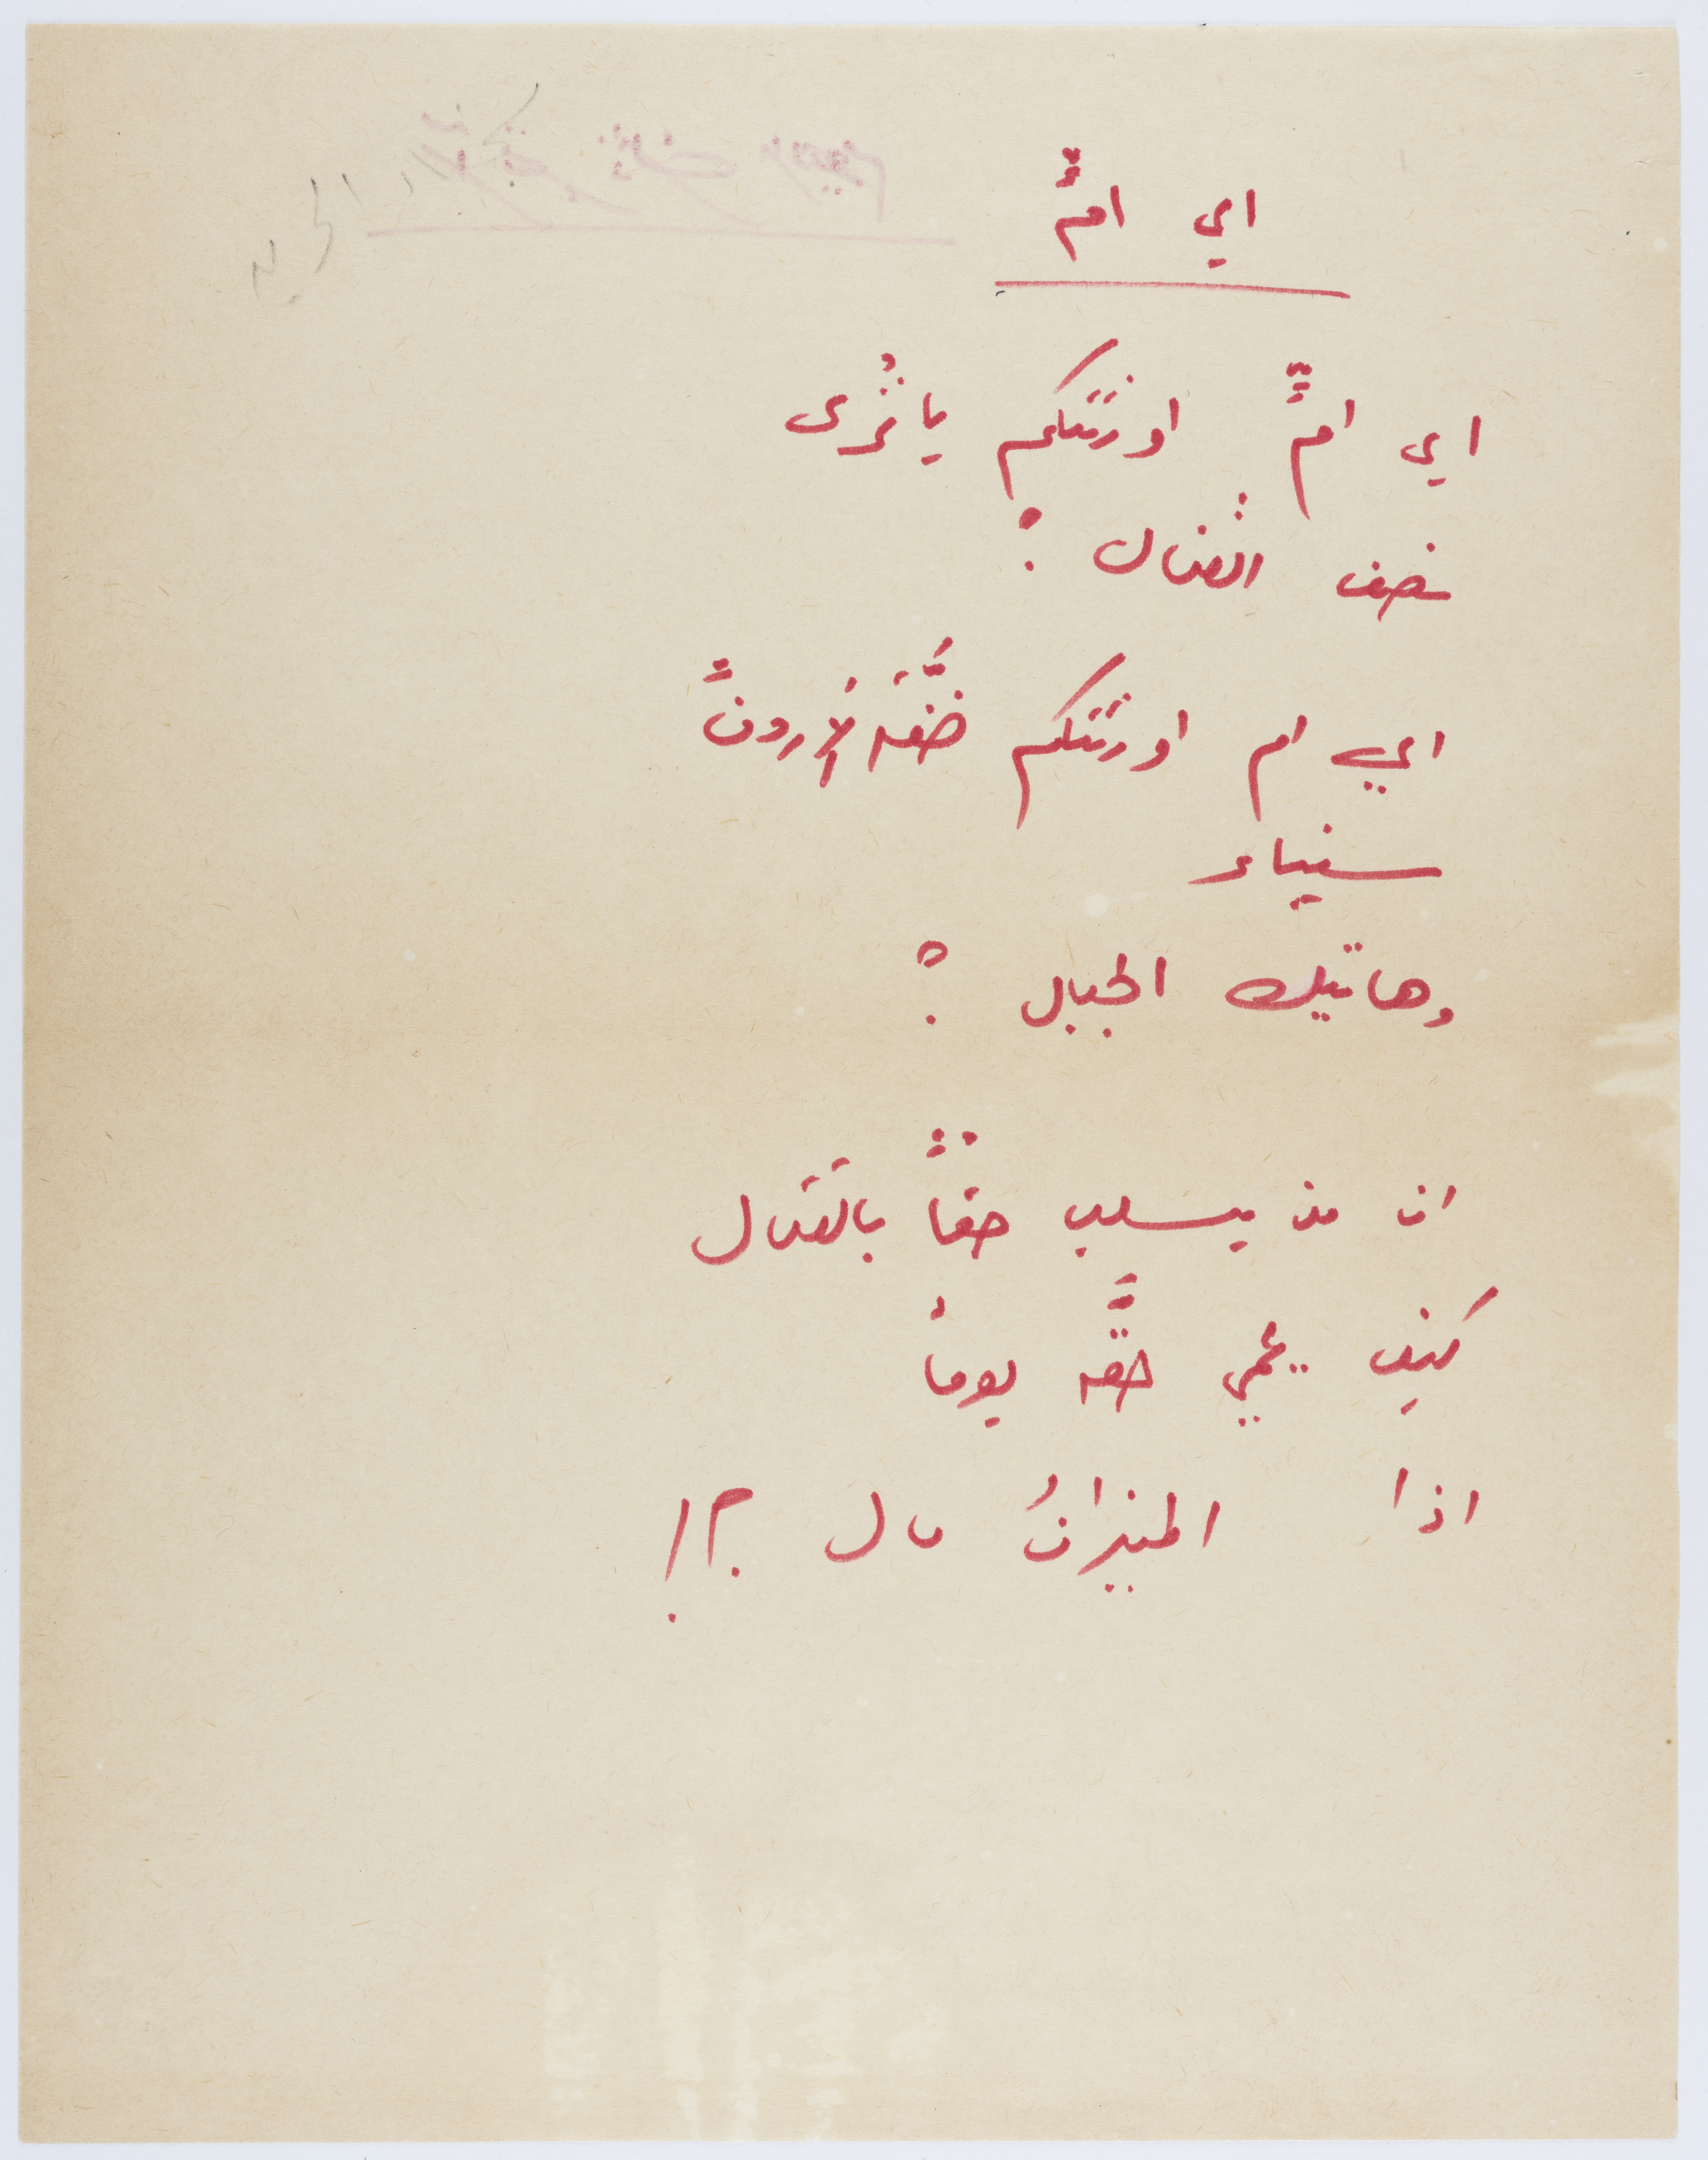 اي امٍّ
اي امٍّ اورثتكم يا تُرى
نصف القنال ؟
اي ام اورثتكم ضفَّةَ الأردنِّ
سيناء
وهاتيك الجبال ؟
ان من يسلب حقاً بالقتال
كيف يحمي حقَّه يوماً
اذا الميزانُ مال ؟!